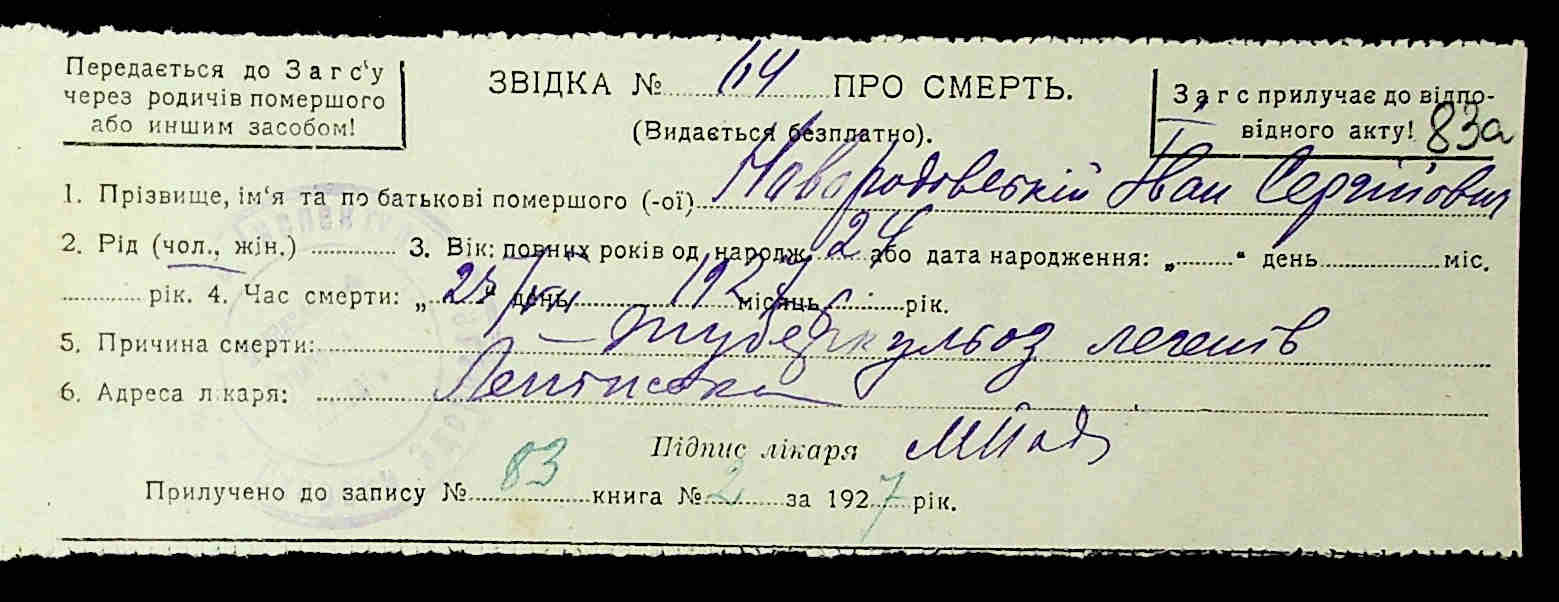 Передається до Загс'у
через родичів помершого
або иншим засобом!
ЗВІДКА № 64 ПРО СМЕРТЬ.
(Видається безплатно).
Загс прилучає до відпо-
відного акту! 83а
1. Прізвище, ім'я та по батькові помершого (-ої) Іван
2. Рід (чол., жін.) 3. Вік: повних років од народж. 24 або дата народження: „ “ день міс.
рік. 4. Час смерти: „ “ день 1927 місяць рік.
5. Причина смерти: – туберкульоз легенів
6. Адреса лікаря:
Підпис лікаря
Прилучено до запису № 83 книга № 2 за 1927 рік.